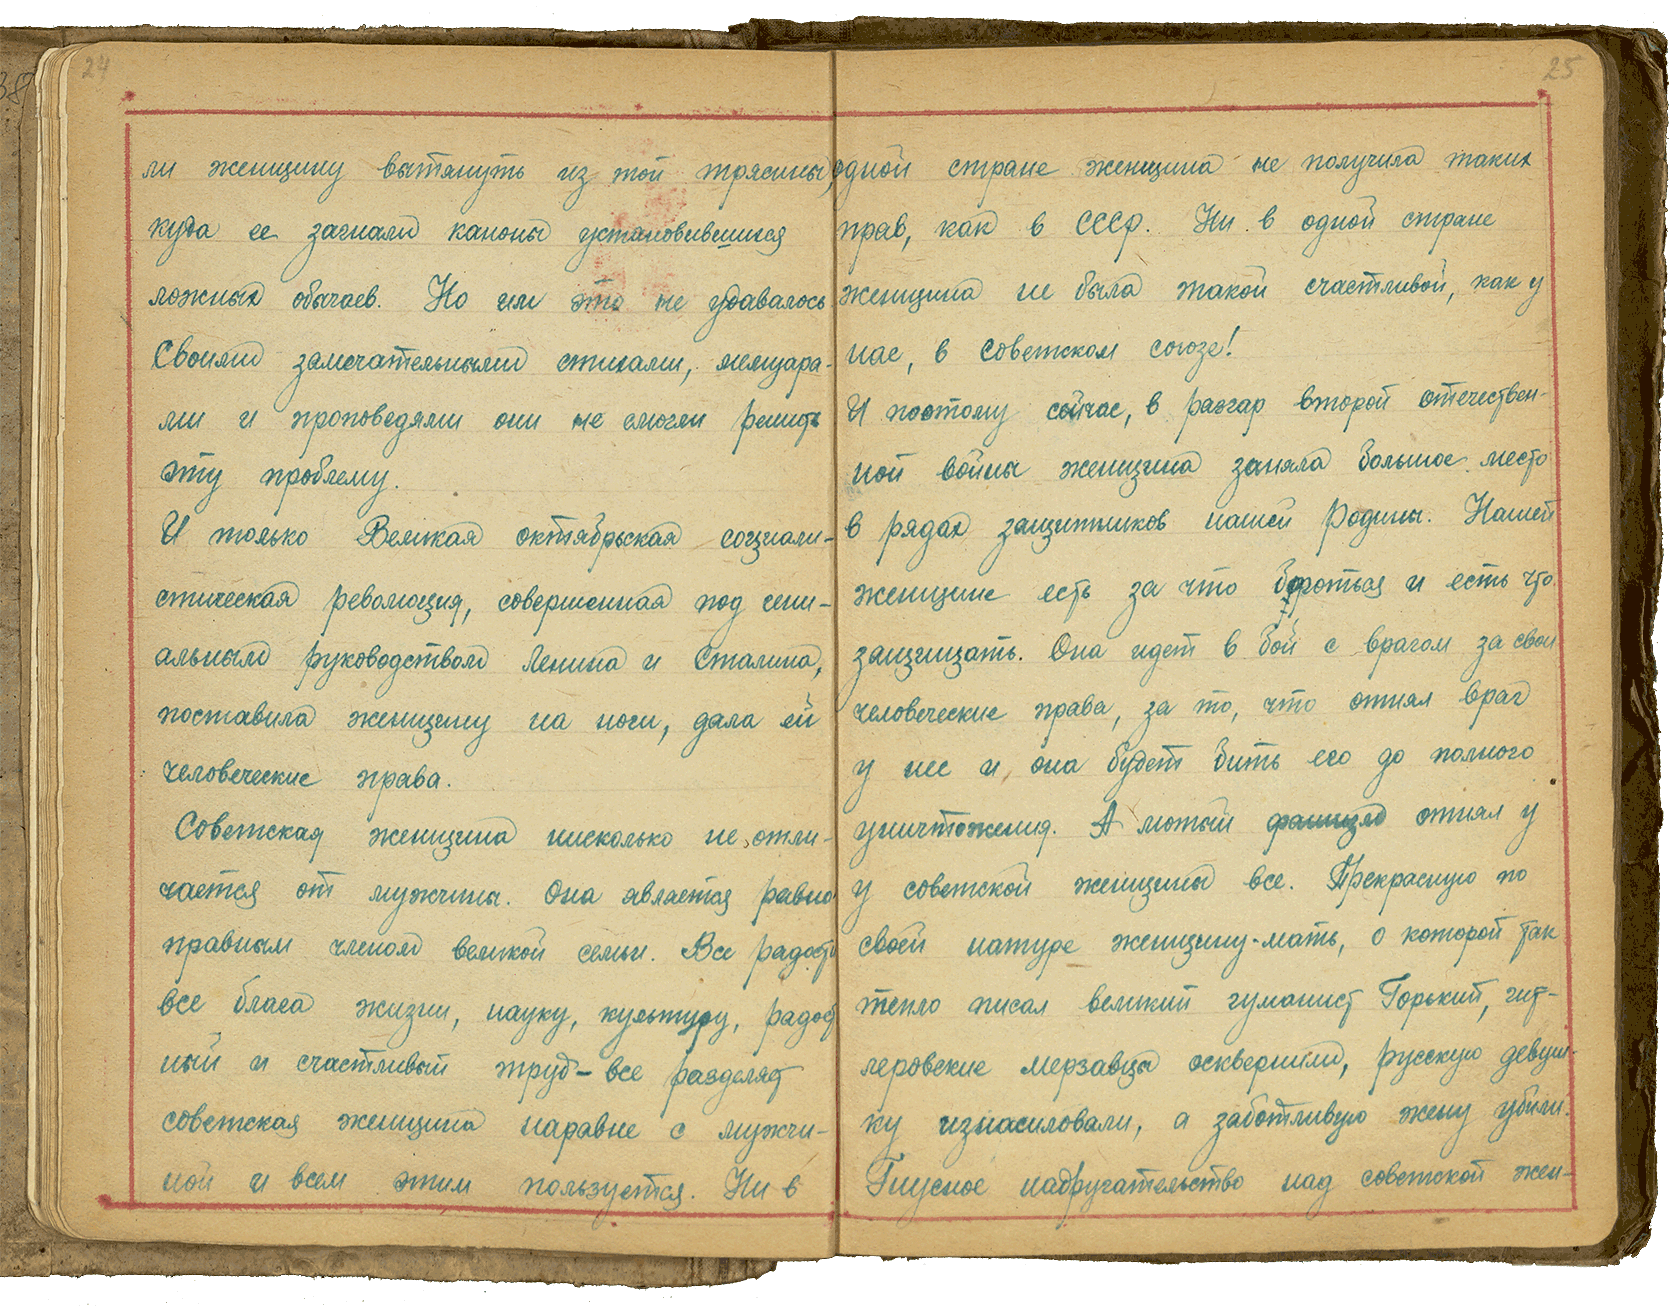 24
ли женщину вытянуть из той трясины,
куда ее загнали каноны установившихся
ложных обычаев. Но им это не удавалось
Своими замечательными стихами, мемуара-
ми и проповедями они не смогли решить
эту проблему.
И только Великая октябрьская социали-
стическая революция, совершенная под гени-
альным руководством Ленина и Сталина,
поставила женщину на ноги, дала ей
человеческие права.
Советская женщина нисколько не отли-
чается от мужчины. Она является равно
правным членом великой семьи. Все радости
все блага жизни, науку, культуру, радост
ный и счастливый труд - все разделяет
советская женщина наравне с мужчи-
ной и всем этим пользуется. Ни в
25
одной стране женщина не получила таких
прав, как в СССР. Ни в одной стране
женщина не была такой счастливой, как у
нас, в Советском союзе!
И поэтому сейчас, в разгар второй отечествен-
ной войны женщина заняла большое место
в рядах защитников нашей Родины. Нашей
женщине есть за что бороться и есть что
защищать. Она идет в бой с врагом за свои
человеческие права, за то, что отнял враг
у нее и она будет бить его до полного
уничтожения. А лютый фашизм отнял у
у советской женщины все. Прекрасную по
своей натуре женщину-мать, о которой так
тепло писал великий гуманист Горький, гит-
леровские мерзавцы осквернили, русскую девуш-
ку изнасиловали, а заботливую жену убили.
Гнусное надругательство над советской жен-